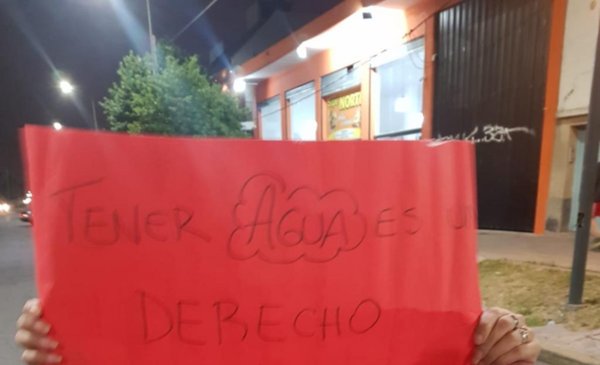 NORTE
TENER AGUA ES UN
DERECHO